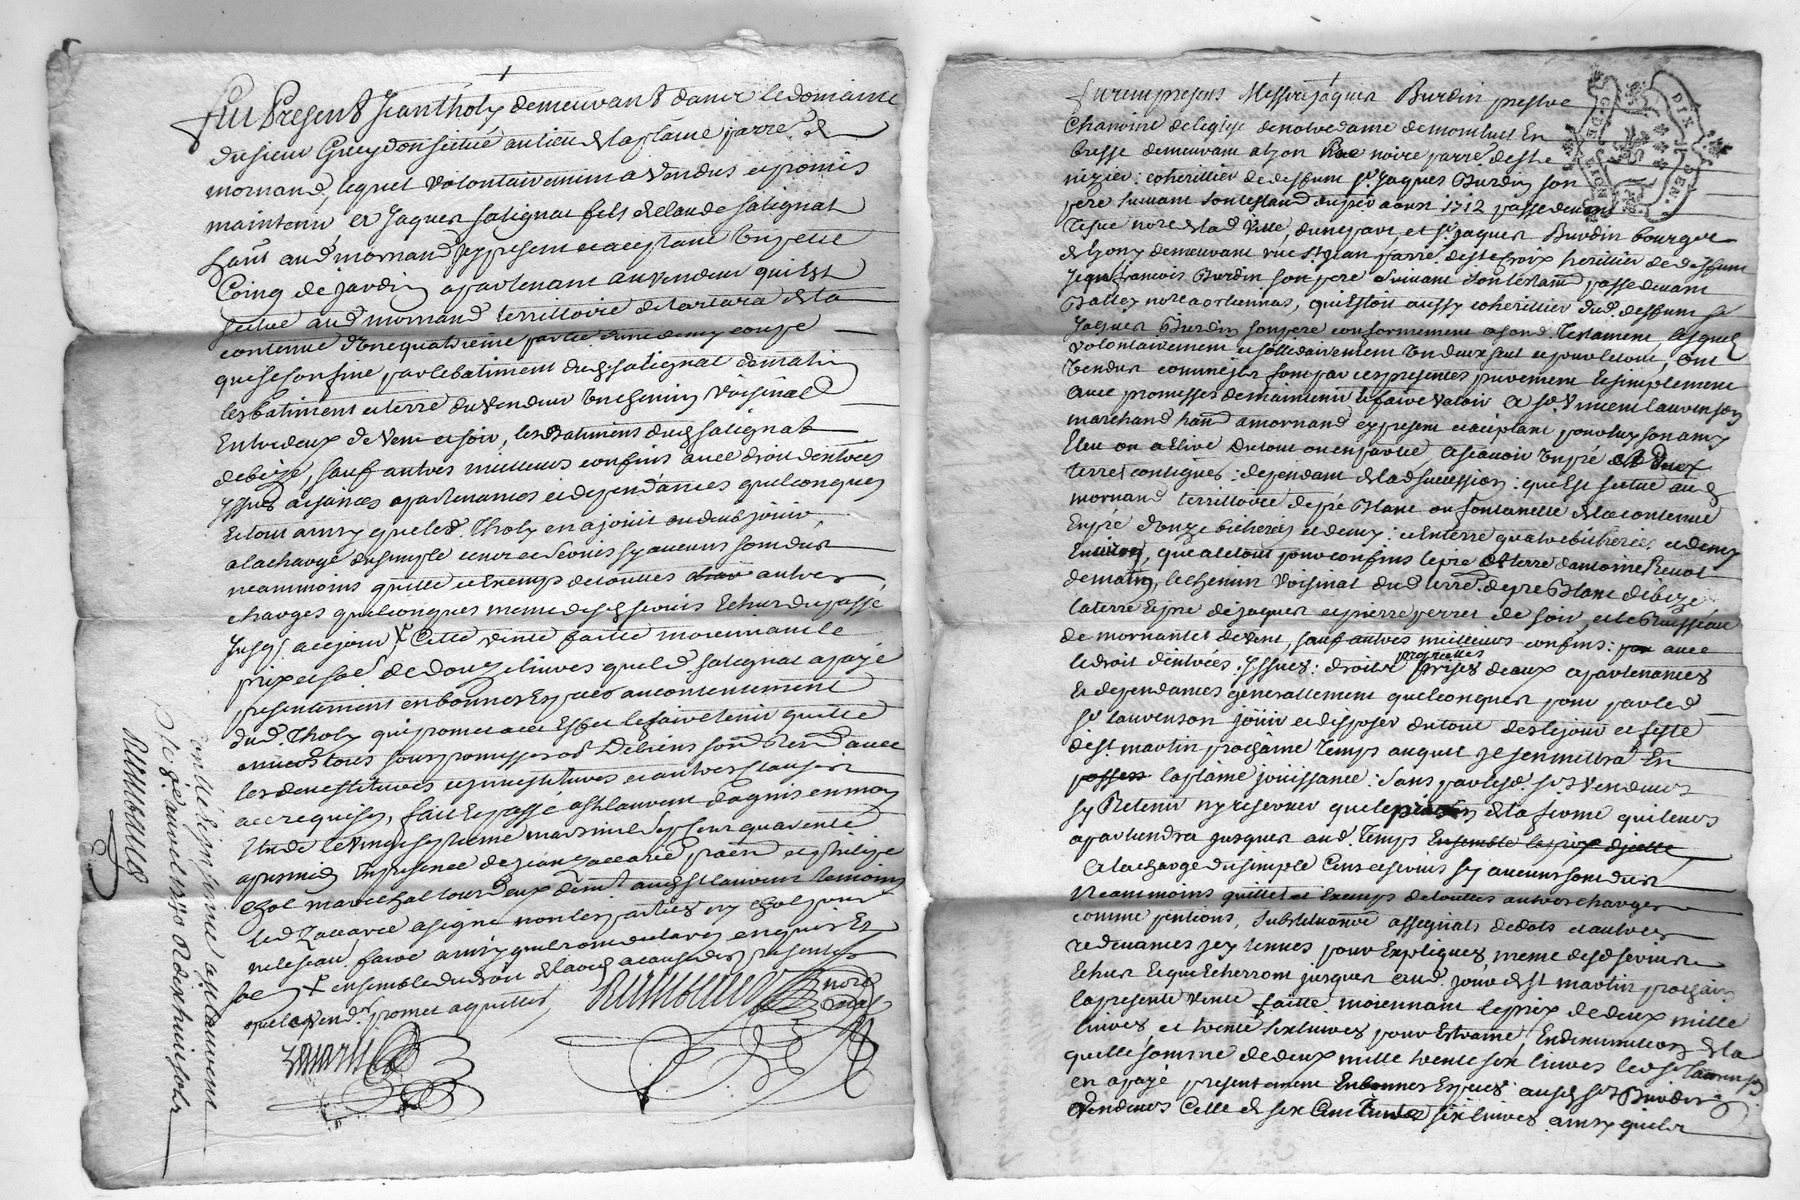 Fut Present Jean tholy demeurant dans le domaine
du sieur Gueydon scitué au lieu de la plaine parre. de
mornand, lequel volontairement a vendus et promis
maintenir a Jaques salignat fils de Claude salignat
hant. aud. mornand icy present et acceptant un petit
Coing de jardin apartenant au vendeur qui est
scitué aud. mornand territoire de la
contenue d'une quatrieme partie d'une demy coupe
qui se confine par le batiment dud. salignat de matin
les batiment et terre du vendeur un chemin voisinal
Entredeux de vent et soir, les Batiments dud. salignat
de bize, sauf autres meilleurs confins avec droit d'entrées
Issues aisances apartenances et dependances quelconques
Et tout ainsy que led. Tholy en a jouit ou deub jouir,
a la charge du simple cens et servis sy aucuns sont dus
neammoins quitte et exemps de toutes autres
charges quelconques meme desd. servis Echus du passé
Jusq. a ce jour Cette vente faitte moiennant le
prix et sōe de Douze livres que led. salignat a payé
presentement en bonnes Especes au contentement
dud. Tholy qui promet a cet Effet le faire tenir quitte
envers tous sous promesses obl.
les devestitures et investitures et autres clauses
a ce requises, fait et passé a st laurent d'agnis en mon
Etude le vingt septieme mars mil sept cent quarante
apres midy En presence de jean Zaccarie et philipe
Chol marechal tous deux demt. aud. st laurent temoins
led. Zaccarie a signé non les parties ny Chol pour
ne le scavoir faire ainsy qu'ils ont declaré enquis Et
ensemble du droit de laods a cause des presentes
que le vend. promet aquitter
nore
royal
Zacarie
controllé et insinué a st laurent
le
Furent presens Messire Jaques Burdin prestre
Chanoine de l'eglise de notre dame de montluel En
bresse demeurant a Lyon Rue noire parre. de st
nizier: coheritier de deffunt sr. Jaques Burdin son
pere suivant son testamt. du per aoust 1712 passé devant
nore de lad. ville, d'une part et sr. jaques Burdin bourgeois
de Lyon y demeurant rue st. jean parre. de ste Croix heritier de deffunt
Jean francois Burdin son pere suivant son testamt. passé devant
nore a ornas, qui Estoit aussy coheritier dud. deffunt sr.
Jaques Burdin son pere conformement a son d. Testament, lesquels
volontairement et sollidairement l'un d'eux seul et pour le tout, ont
vendus comme ils font par ces presentes purement et simplement
avec promesses de maintenir et faire valoir a sr. vincent laurenson
marchand hant. a mornand cy present et aceptant pour luy son amy
Eleu ou a Elire du tout ou en partie a scavoir un pré et deux
terres contigues: dependant de lad. succession: qui Est scitué aud.
mornand territtoire de pré Blanc ou fontanelle de la contenue
En pré d'onze bicherés et demy: et En terre quatre bicherées et demy
Environ, que le tout pour confins le pré et terre d'antoine
de matin, le chemin voisinal dud. terre. de pre Blanc de bize
la terre et pré de jaques et pierre perret de soir, et le Ruisseau
de mornantet de vent, sauf autres meilleurs confins: avec
le droit d'entrées. Issues: droits proprietes prises d'eaux apartenances
Et dependances generallement quelconques pour par led.
sr. laurenson jöuir et disposer du tout dès le jour et feste
de st martin prochaine temps auquel il s'en mettra En
possess la plaine jöuissance: sans par lesd. srs. vendeurs
sy Retenir ny reserver que de la ferme qui leurs
apartiendra jusques aud. temps Ensemble le prix d'jcelle
a la charge du simple Cens et servis sy aucuns sont dus
Neammoins quittes et Exemps de touttes autres charges
comme pentions, substitutions assignats de dots et autres
redevances jcy tenues pour Expliqués, meme desd. servis
Echus Et qui Echerront jusques aud. jour de st martin prochain
la presente vente faitte moiennant le prix de deux mille
livres, et trente six livres pour Estraine, En diminution de la
quelle somme de deux mille trente six livres led. sr. laurenson
en a payé presentement En bonnes Especes auxd. srs Burdin
vendeurs Celle de six Cent trente six livres ainsy qu'ils